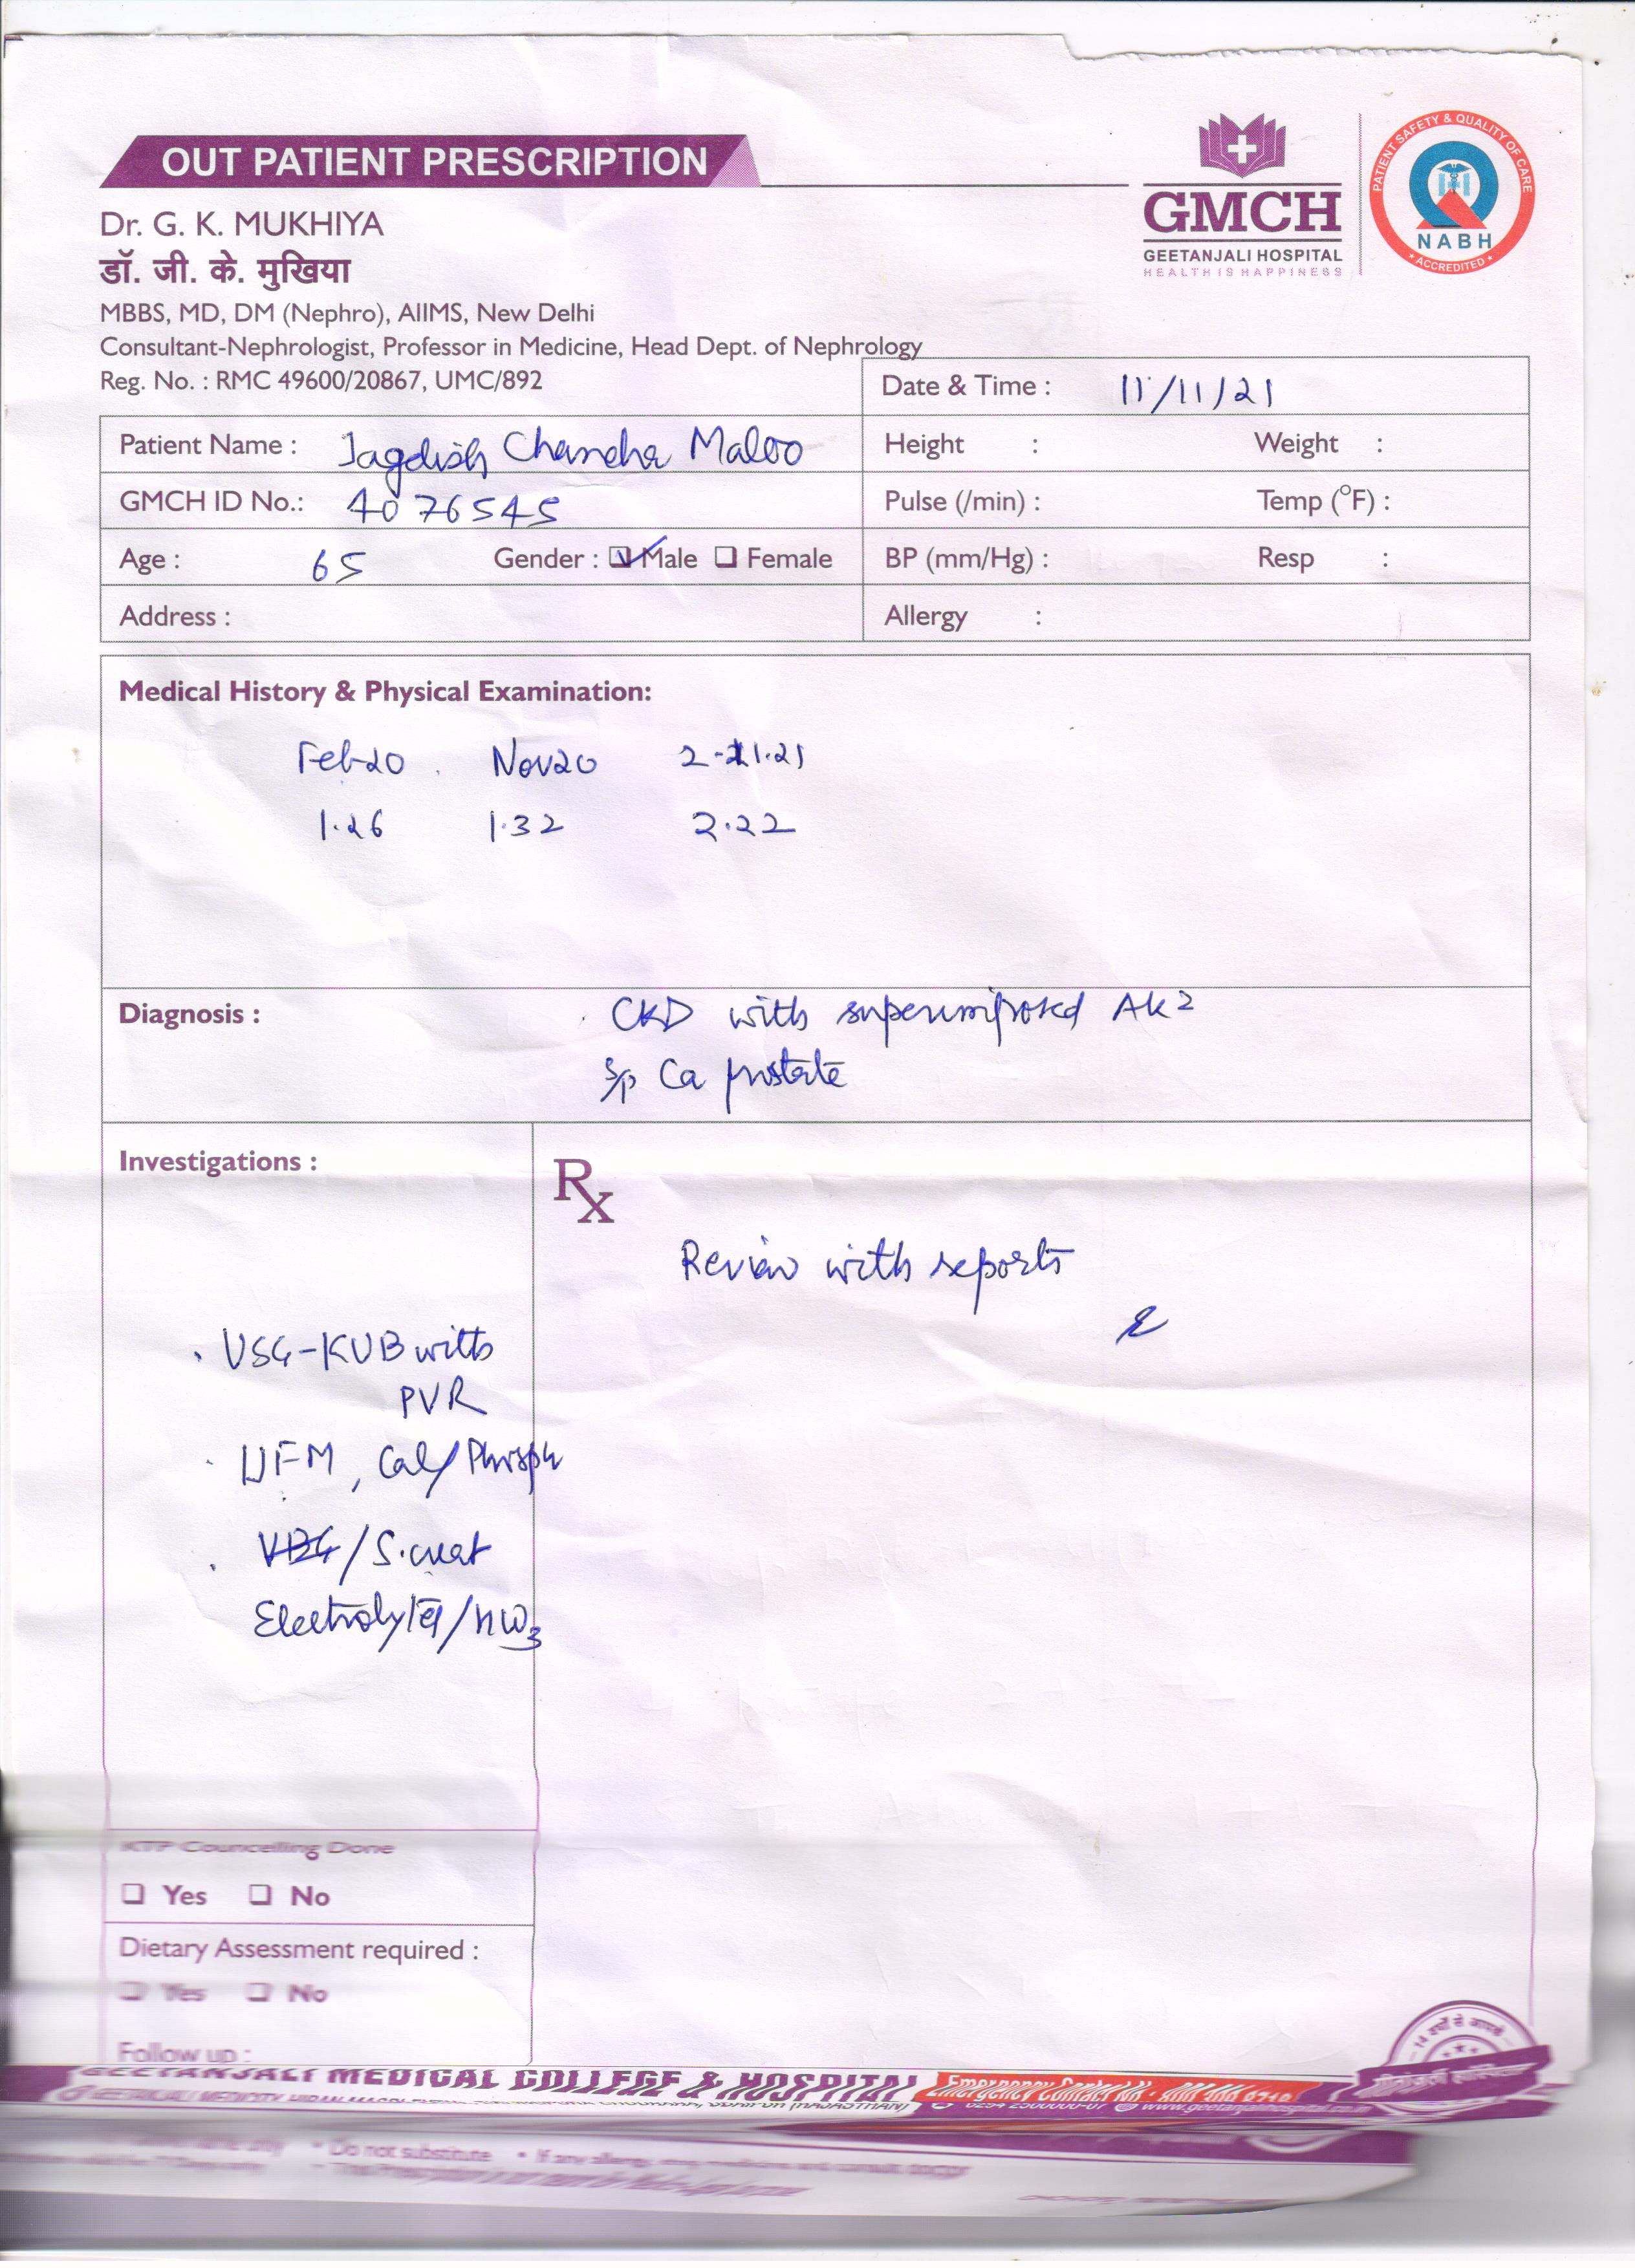 OUT PATIENT PRESCRIPTION
GMCH
GEETANJALI HOSPITAL
HEALTH IS HAPPINESS
PATIENT SAFETY & QUALITY OF CARE
NABH
ACCREDITED
Dr. G. K. MUKHIYA
डॉ. जी. के. मुखिया
MBBS, MD, DM (Nephro), AIIMS, New Delhi
Consultant-Nephrologist, Professor in Medicine, Head Dept. of Nephrology
Reg. No. : RMC 49600/20867, UMC/892
Date & Time : 11/11/21
Patient Name : Jagdish Chandra Maloo
Height : Weight :
GMCH ID No.: 4076545
Pulse (/min) : Temp (°F) :
Age : 65 Gender : Male Female
BP (mm/Hg) : Resp :
Address :
Allergy :
Medical History & Physical Examination:
Feb20 Nov20 2.11.21
1.26 1.32 2.22
Diagnosis : CKD with superimposed AKI
S/P Ca prostate
Investigations :
Rx
Review with reports
USG-KUB with
PVR
UFM, Cal/Phosph
VBG/S.creat
Electrolytes/HCO3
KTP Councelling Done
Yes No
Dietary Assessment required :
Yes No
Follow up :
GEETANJALI MEDICAL COLLEGE & HOSPITAL
Do not substitute • If any allergy,